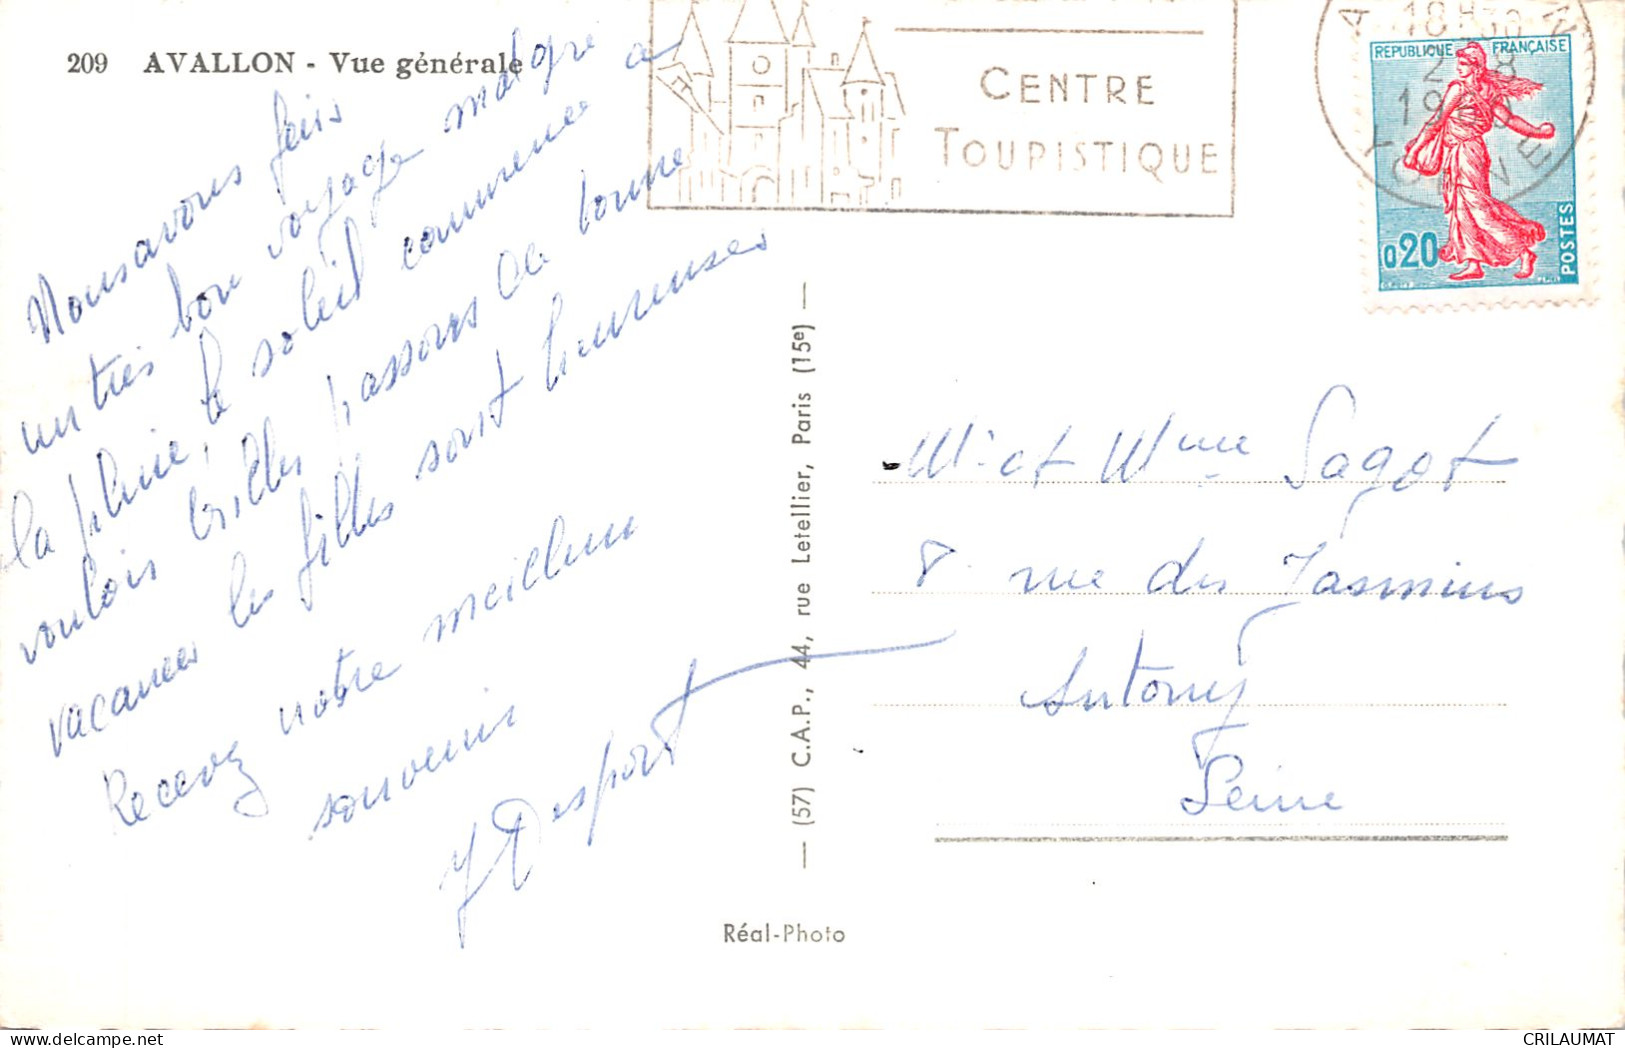 209 AVALLON - Vue générale
CENTRE
TOURISTIQUE
18H30
2 8
19
YONNE
REPUBLIQUE FRANÇAISE
0,20
POSTES
Nous avons fais
un très bon voyage malgré
la pluie, le soleil commence a
vouloir briller passons de bonne
vacances les filles sont heureuses
Recevez notre meilleur
souvenir
Desport
— (57) C.A.P., 44, rue Letellier, Paris (15e) —
Réal-Photo
Mr et Mme Sagot
8 rue des Jasmins
Antony
Seine
CRILAUMAT